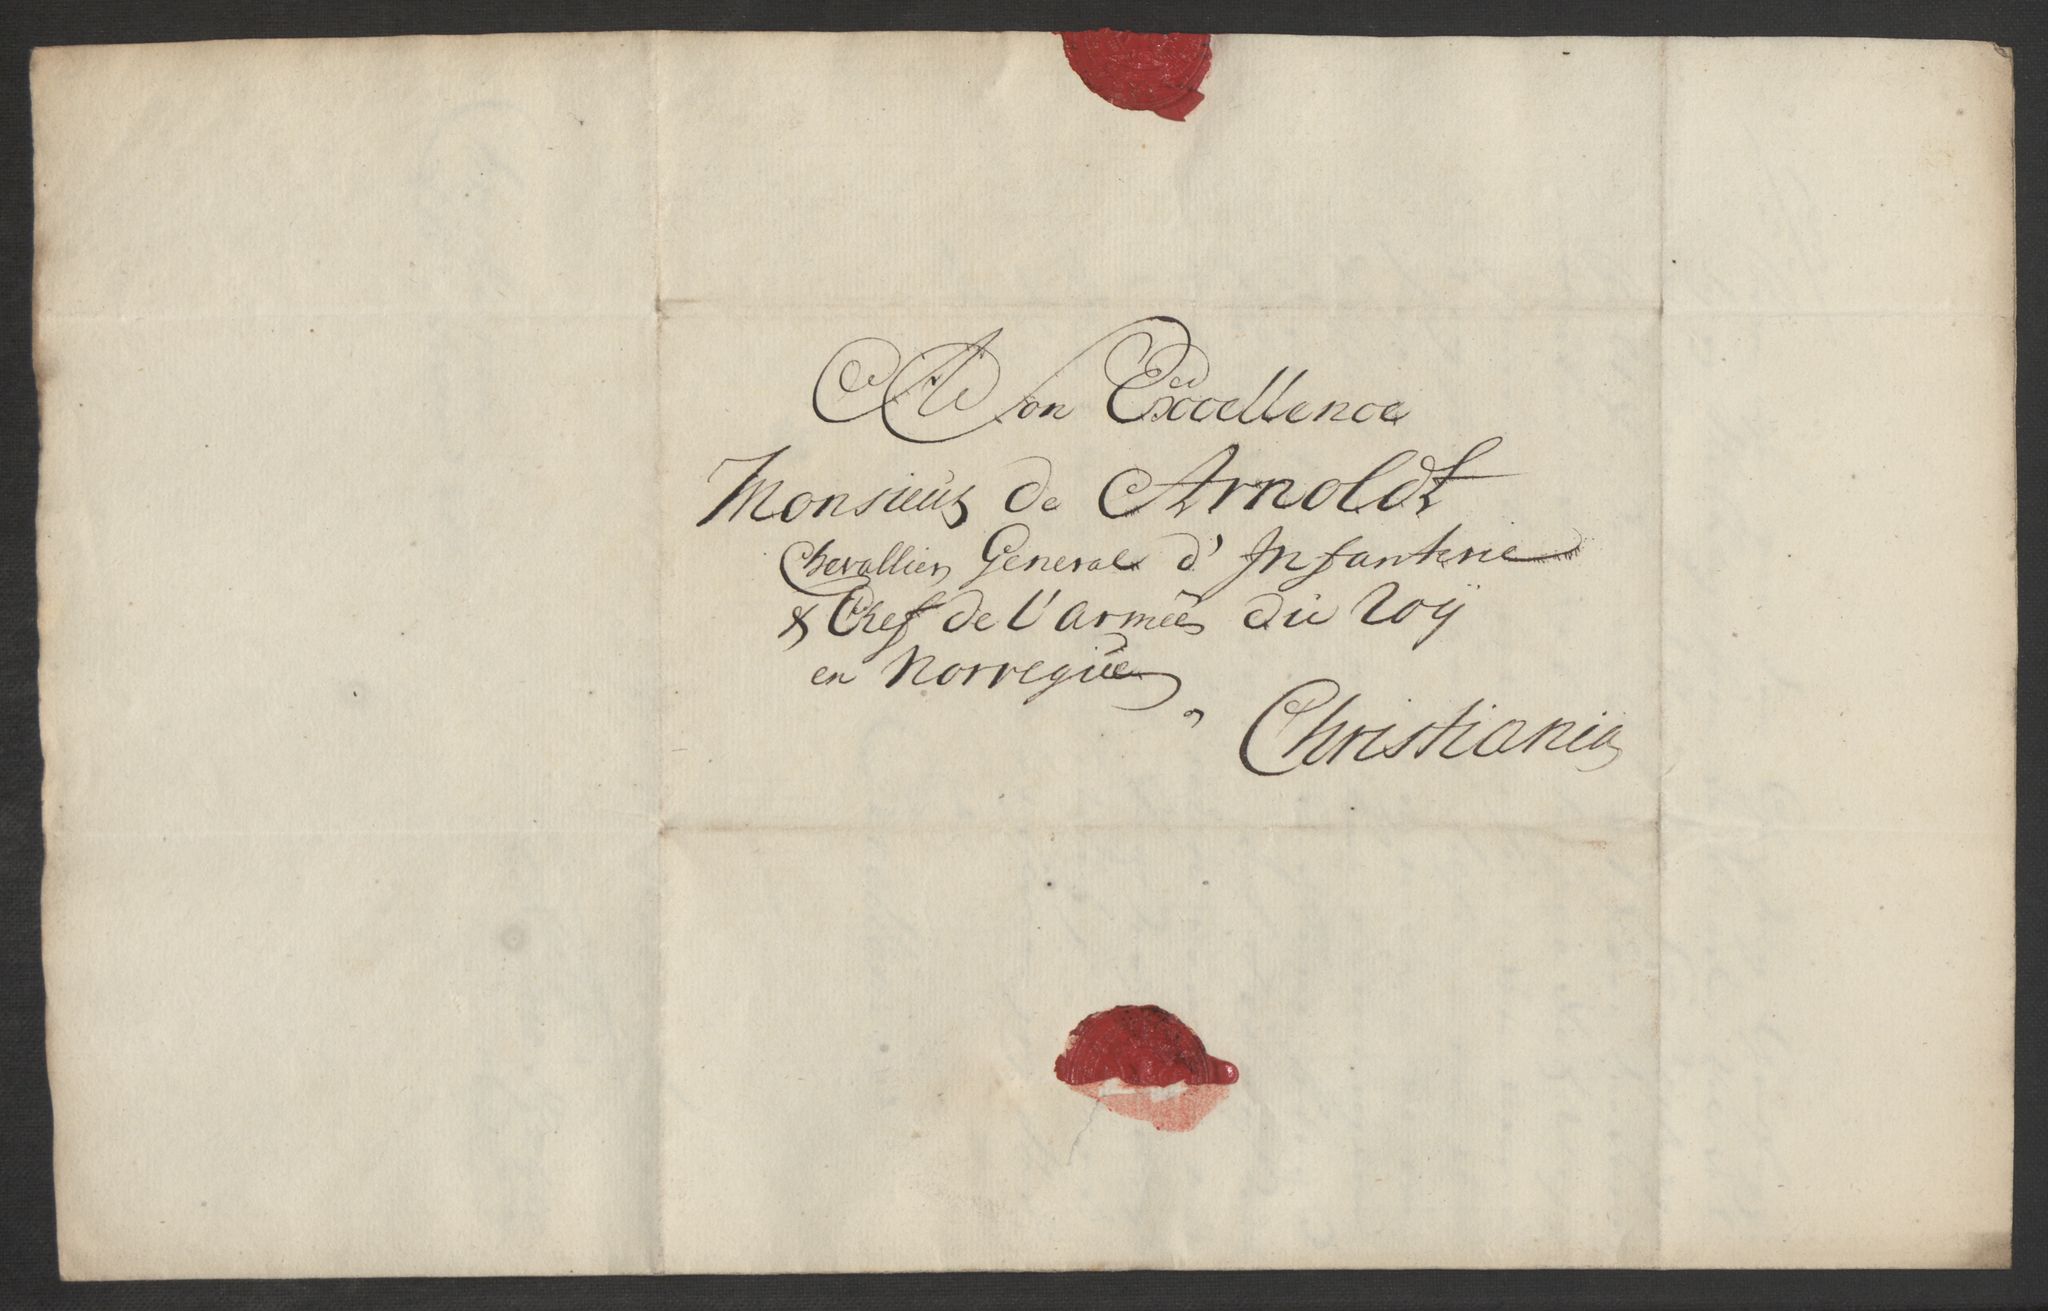 A Son Excellence
Monsieur de Arnoldt
Chevallier General d'Infanterie
& Chef de l'armée du Roÿ
en Norregüe
Christiania